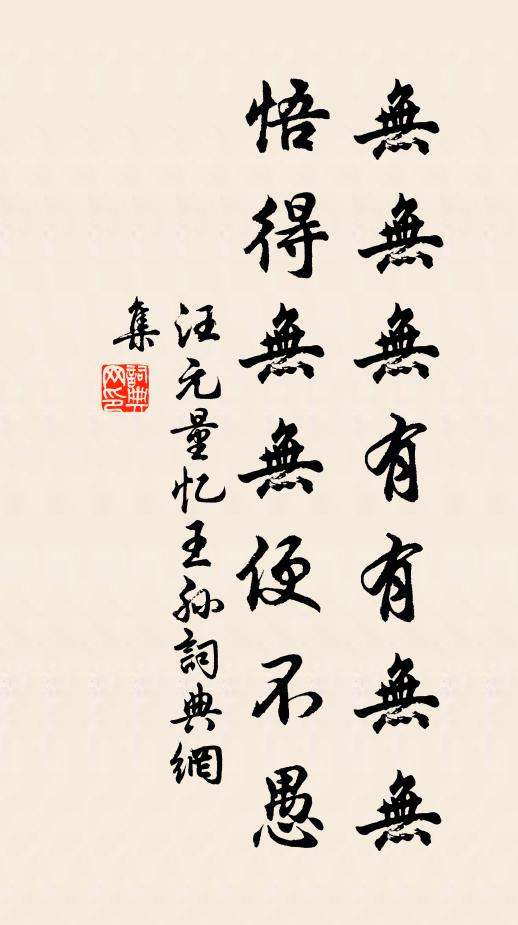 無無無有有無無
悟得無無便不愚
汪元量忆王孙詞典網
集
詞典
网印